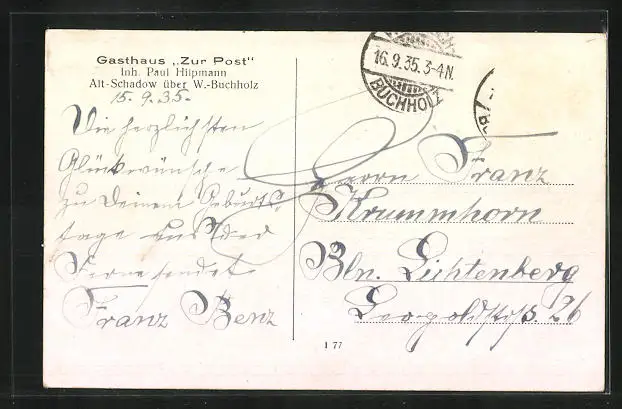 Gasthaus „Zur Post"
Inh. Paul Hilpmann
Alt-Schadow über W.-Buchholz
15. 9. 35.
Die herzlichsten
Glückwünsche
zu Deinem Geburts
tage aus der
Ferne sendet
Franz Benz
16.9.35.3-4N.
BUCHHOLZ
Herrn Franz
Krummhorn
Bln. Lichtenberg
Leopoldstr. 26
I 77